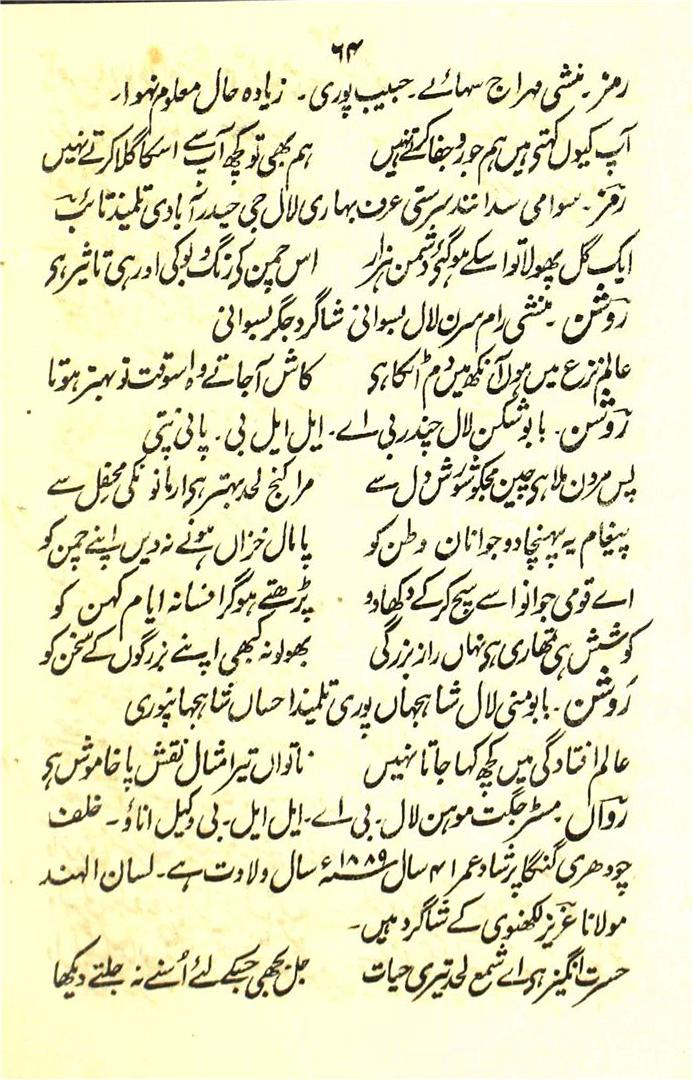 ۶۴
رمز۔ منشی مہراج سہائے۔ حبیب پوری۔ زیادہ حال معلوم نہوا۔
آپ کیوں کہتی ہیں ہم جور و جفا کرتے نہیں ہم بھی تو کچھ آپ سے اسکا گلا کرتے نہیں
رمز۔ سوامی سدانند سرستی عرف بہاری لال جی حیدرآبادی تلمیذ تائب
ایک گل پھولا تو اسکے ہوگئے دشمن ہزار اس چمن کی رنگ و بو کی اور ہی تاثیر ہی
روشن۔ منشی رام سرن لال بسوانی شاگرد جگر بسوانی
عالم نزع میں ہوں آنکھ میں دم اٹکا ہی کاش آجاتے وہ اسوقت تو بہتر ہوتا
روشن۔ بابو شگن لال چندر بی اے۔ ایل ایل بی۔ پانی پتی
پس مردن ملا ہی چین مجکو شورش دل سے مرا کنج لحد بہتر ہی ارمانونکی محفل سے
پیغام یہ پہنچا دو جوانان وطن کو پامال خزاں ہونے نہ دیں اپنے چمن کو
اے قومی جوانو اسے سچ کر کے دکھا دو پڑھتے ہو گر افسانہ ایام کہن کو
کوشش ہی تمھاری ہی نہاں راز بزرگی بھولو نہ کبھی اپنے بزرگوں کے سخن کو
روشن۔ بابو منی لال شاہجہاں پوری تلمیذ احساں شاہجہانپوری
عالم افتادگی میں کچھ کہا جاتا نہیں ناتواں تیرا مثال نقش پا خاموش ہی
رواں۔ مسٹر جگت موہن لال۔ بی اے۔ ایل۔ ایل۔ بی وکیل اناؤ۔ خلف
چودھری گنگا پرشاد عمر ۴۱ سال ۱۸۸۹ء سال ولادت ہے۔ لسان الہند
مولانا عزیز لکھنوی کے شاگرد ہیں۔
حسرت انگیز ہی اے شمع لحد تیری حیات جل بجھی جسکے لئے اُسنے نہ جلتے دیکھا